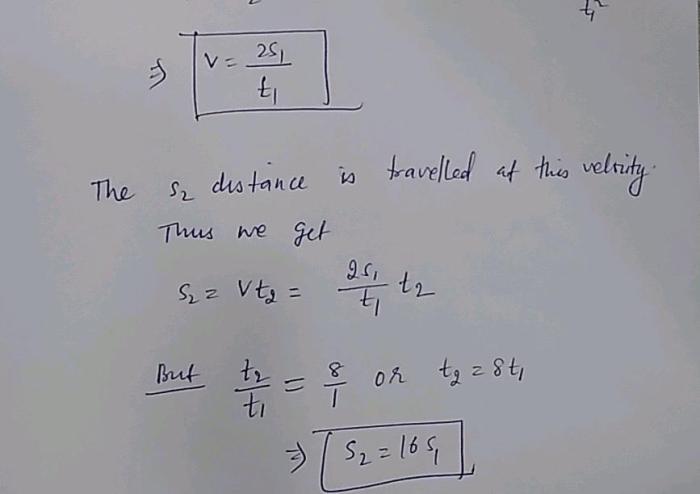 t₁²
⇒ V = 2S₁ / t₁
The S₂ distance is travelled at this velocity.
Thus we get
S₂ = Vt₂ = 2S₁ / t₁ t₂
But t₂ / t₁ = 8 / 1 or t₂ = 8t₁
⇒ S₂ = 16 S₁